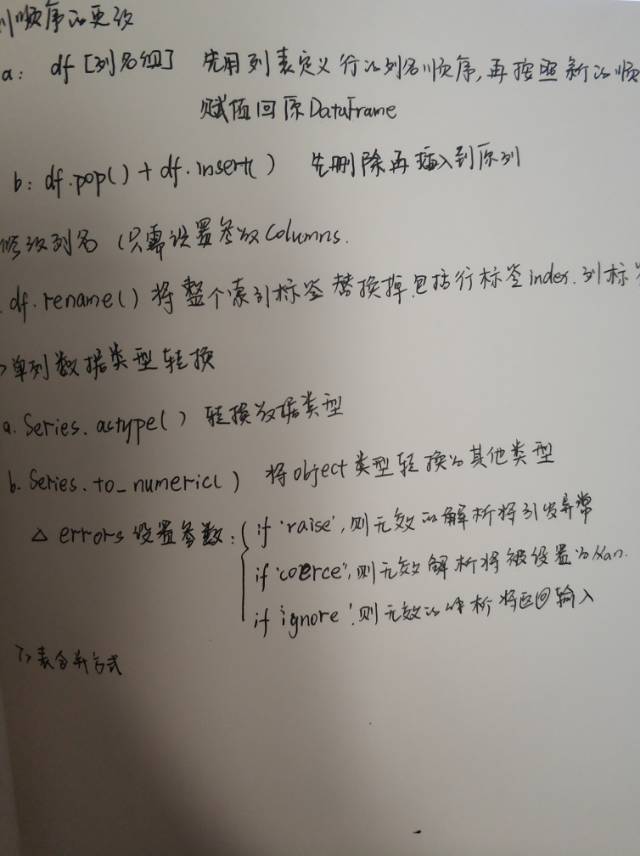 列顺序的更改
a: df[列名组] 先用列表定义行的列名顺序,再按照新的顺
赋值回原DataFrame
b: df.pop() + df.insert() 先删除再插入到原列
修改列名 (只需设置参数columns.
df.rename() 将整个索引标签替换掉,包括行标签index.列标
单列数据类型转换
a. Series.astype() 转换数据类型
b. Series.to_numeric() 将object类型转换为其他类型
△ errors设置参数:
if 'raise',则无效的解析将引发异常
if 'coerce',则无效解析将被设置为Nan.
if 'ignore'.则无效的解析将返回输入
7> 表合并方式